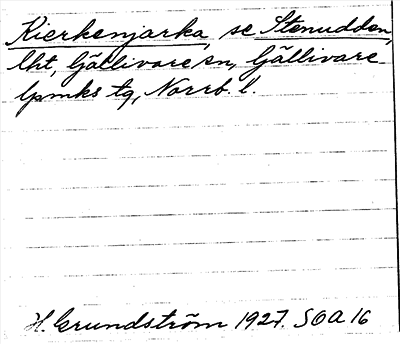 Kierkenjarka, se Stenudden,
lht, Gällivare sn, Gällivare
lpmks tg, Norrb. l.
H. Grundström 1927. SOA 16